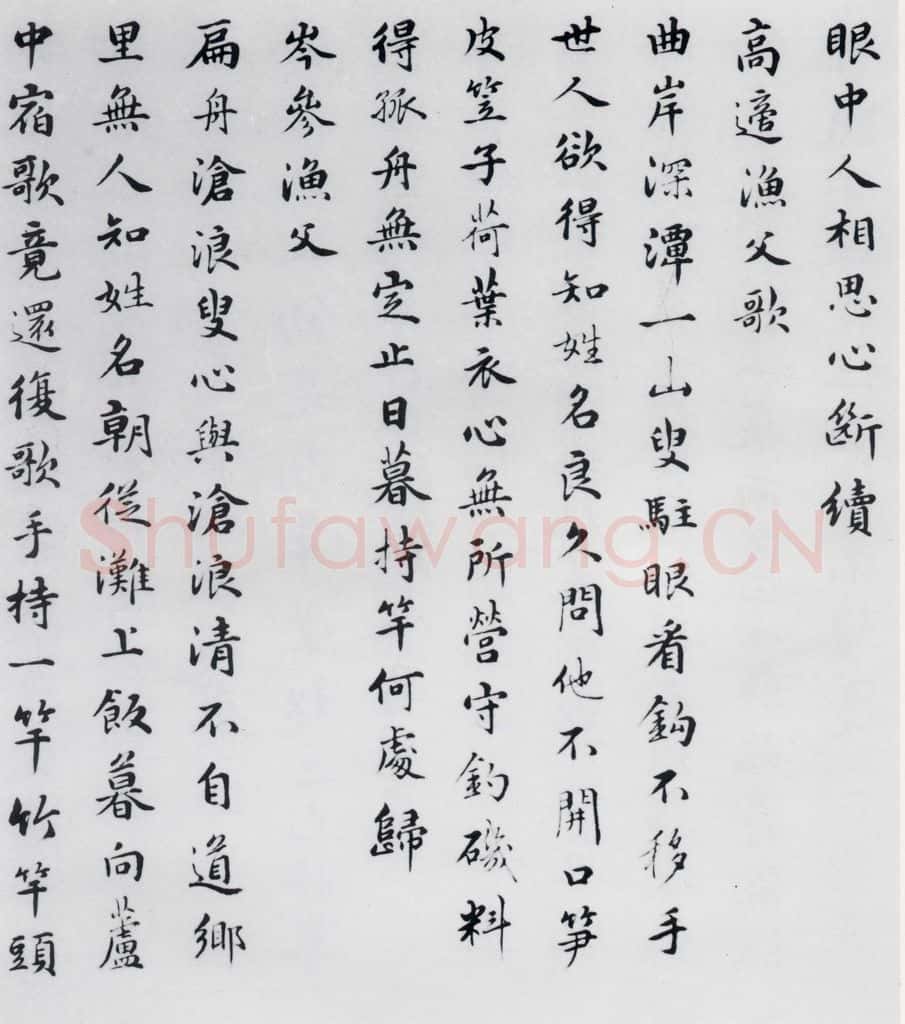 眼中人相思心斷續
高適漁父歌
曲岸深潭一山叟駐眼看鈎不移手
世人欲得知姓名良久問他不開口笋
皮笠子荷葉衣心無所營守釣磯料
得孤舟無定止日暮持竿何處歸
岑參漁父
扁舟滄浪叟心與滄浪清不自道鄉
里無人知姓名朝從灘上飯暮向蘆
中宿歌竟還復歌手持一竿竹竿頭
Shufawang.CN